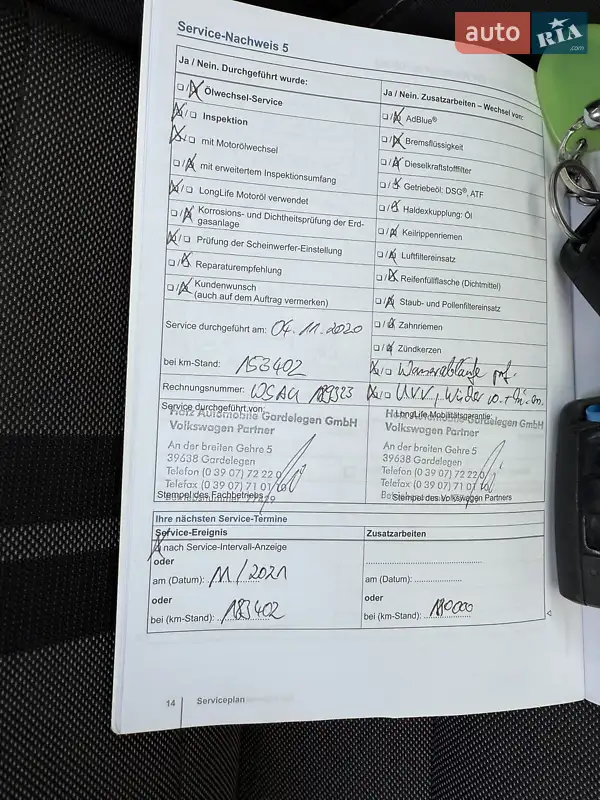 auto RIA .com
Service-Nachweis 5
Ja / Nein. Durchgeführt wurde:
Ölwechsel-Service
Inspektion
mit Motorölwechsel
mit erweitertem Inspektionsumfang
LongLife Motoröl verwendet
Korrosions- und Dichtheitsprüfung der Erd-
gasanlage
Prüfung der Scheinwerfer-Einstellung
Reparaturempfehlung
Kundenwunsch
(auch auf dem Auftrag vermerken)
Service durchgeführt am: 04.11.2020
bei km-Stand: 153402
Rechnungsnummer:
Service durchgeführt von:
Ja / Nein. Zusatzarbeiten – Wechsel von:
AdBlue®
Bremsflüssigkeit
Dieselkraftstofffilter
Getriebeöl: DSG®, ATF
Haldexkupplung: Öl
Keilrippenriemen
Luftfiltereinsatz
Reifenfüllflasche (Dichtmittel)
Staub- und Pollenfiltereinsatz
Zahnriemen
Zündkerzen
Wasserabläufe
UVV,
LongLife Mobilitätsgarantie:
Automobile Gardelegen GmbH
Volkswagen Partner
An der breiten Gehre 5
39638 Gardelegen
Telefon (0 39 07) 72 22 0
Telefax (0 39 07) 71 01
Stempel des Fachbetriebs
Automobile Gardelegen GmbH
Volkswagen Partner
An der breiten Gehre 5
39638 Gardelegen
Telefon (0 39 07) 72 22 0
Telefax (0 39 07) 71 01
Stempel des Volkswagen Partners
Ihre nächsten Service-Termine
Service-Ereignis
nach Service-Intervall-Anzeige
oder
am (Datum): 11/2021
oder
bei (km-Stand): 183402
Zusatzarbeiten
am (Datum):
oder
bei (km-Stand): 180000
14 Serviceplan